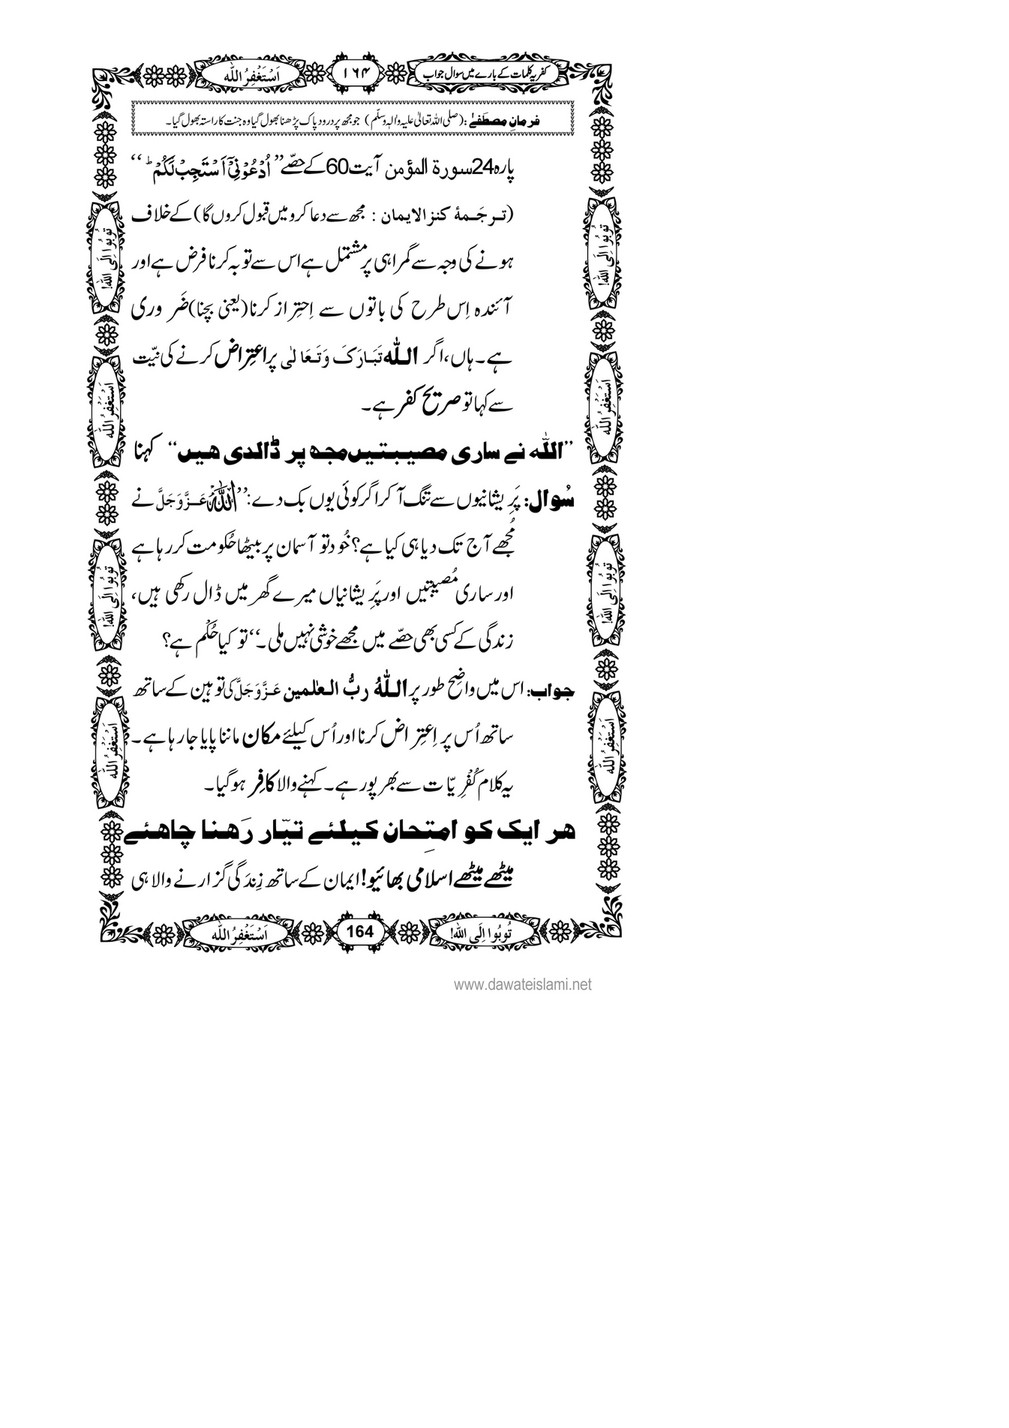 کفریہ کلمات کے بارے میں سوال جواب ۱۶۴ اَسْتَغْفِرُ اللّٰه
فرمانِ مصطَفٰے : (صلی اللہ تعالیٰ علیہ والہٖ وسلّم) جو مجھ پر درودِ پاک پڑھنا بھول گیا وہ جنت کا راستہ بھول گیا۔
پارہ 24 سورۃ المؤمن آیت 60 کے حصّے ’’ اُدْعُوْنِیْۤ اَسْتَجِبْ لَكُمْ ؕ ‘‘
(ترجَمۂ کنزالایمان : مجھ سے دعا کرو میں قبول کروں گا) کے خلاف
ہونے کی وجہ سے گمراہی پر مشتمل ہے اس سے توبہ کرنا فرض ہے اور
آئندہ اِس طرح کی باتوں سے اِحتِراز کرنا (یعنی بچنا) ضَروری
ہے۔ ہاں، اگر اللہ تَبَارَکَ وَتَعَالٰی پر اعتِراض کرنے کی نیّت
سے کہا تو صریح کفر ہے۔
’’اللہ نے ساری مصیبتیں مجھ پر ڈالدی ہیں‘‘ کہنا
سُوال: پَریشانیوں سے تنگ آکر اگر کوئی یوں بک دے: ’’اللہ عَزَّوَجَلَّ نے
مُجھے آج تک دیا ہی کیا ہے؟ خُود تو آسمان پر بیٹھا حُکومت کر رہا ہے
اور ساری مُصیبتیں اور پَریشانیاں میرے گھر میں ڈال رکھی ہیں،
زندگی کے کسی بھی حصّے میں مجھے خوشی نہیں ملی۔‘‘ تو کیا حُکْم ہے؟
جواب: اس میں واضِح طور پر اللہُ ربُّ العٰلمین عَزَّوَجَلَّ کی توہین کے ساتھ
ساتھ اُس پر اِعتِراض کرنا اور اُس کیلئے مکان ماننا پایا جا رہا ہے۔
یہ کلام کُفْرِیّات سے بھر پور ہے۔ کہنے والا کافِر ہو گیا۔
ہر ایک کو امتِحان کیلئے تیّار رَہنا چاہئے
میٹھے میٹھے اسلامی بھائیو! ایمان کے ساتھ زِندَگی گزارنے والا ہی
تُوبُوا اِلَی اللّٰه! 164 اَسْتَغْفِرُ اللّٰه
تُوبُوا اِلَی اللّٰه!
اَسْتَغْفِرُ اللّٰه
تُوبُوا اِلَی اللّٰه!
اَسْتَغْفِرُ اللّٰه
تُوبُوا اِلَی اللّٰه!
اَسْتَغْفِرُ اللّٰه
تُوبُوا اِلَی اللّٰه!
اَسْتَغْفِرُ اللّٰه
www.dawateislami.net